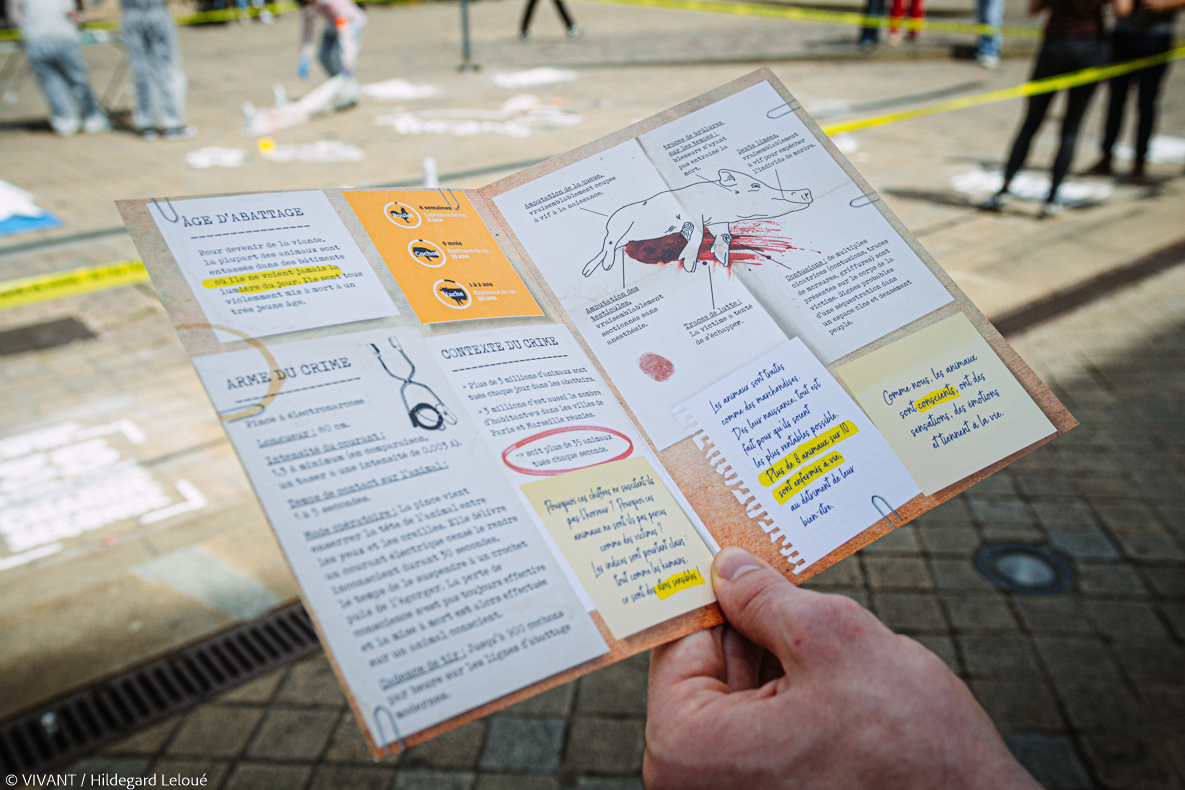 ÂGE D'ABATTAGE
Pour devenir de la viande,
la plupart des animaux sont
entassés dans des bâtiments
où ils ne voient jamais la
lumière du jour. Ils sont tous
violemment mis à mort à un
très jeune âge.
Poulet
6 semaines
Espérance de vie:
8 ans
Cochon
6 mois
Espérance de vie:
Vache
1 à 2 ans
Espérance de vie:
20 ans
ARME DU CRIME
Pince à électronarcose
Longueur : 80 cm.
Intensité du courant :
1,3 A minimum (en comparaison,
un taser a une intensité de 0,003 A).
Temps de contact sur l'animal :
Mode opératoire : La pince vient
enserrer la tête de l'animal entre
les yeux et les oreilles. Elle délivre
un courant électrique censé le rendre
inconscient durant 30 secondes,
le temps de le suspendre à un crochet
puis de l'égorger. La perte de
conscience n'est pas toujours effective
et la mise à mort est alors effectuée
sur un animal conscient.
Cadence de tir : Jusqu'à 900 cochons
par heure sur les lignes d'abattage
modernes.
CONTEXTE DU CRIME
- Plus de 3 millions d'animaux sont
tués chaque jour dans les abattoirs.
- 3 millions c'est aussi le nombre
d'habitant·es dans les villes de
Paris et Marseille réunies.
-> soit plus de 35 animaux
tués chaque seconde.
Pourquoi ces chiffres ne suscitent-ils
pas l'horreur ? Pourquoi ces
animaux ne sont-ils pas perçus
comme des victimes ?
Les indices sont pourtant clairs :
tout comme les humains,
ce sont des êtres sensibles !
Amputation de la queue,
vraisemblablement coupée
à vif à la naissance.
Traces de brûlures
sur les tempes :
blessure n'ayant
pas entraîné la
mort.
Dents limées,
vraisemblablement
à vif pour empêcher
l'individu de mordre.
Amputation des
testicules,
vraisemblablement
sectionnés sans
anesthésie.
Traces de lutte :
La victime a tenté
de s'échapper.
Contusions : de multiples
cicatrices (contusions, traces
de morsures, griffures) sont
présentes sur le corps de la
victime. Signes probables
d'une séquestration dans
un espace clos et densément
peuplé.
Les animaux sont traités
comme des marchandises.
Dès leur naissance, tout est
fait pour qu'ils soient
les plus rentables possible.
Plus de 8 animaux sur 10
sont enfermés à vie,
au détriment de leur
bien-être.
Comme nous, les animaux
sont conscients, ont des
sensations, des émotions
et tiennent à la vie.
© VIVANT / Hildegard Leloué